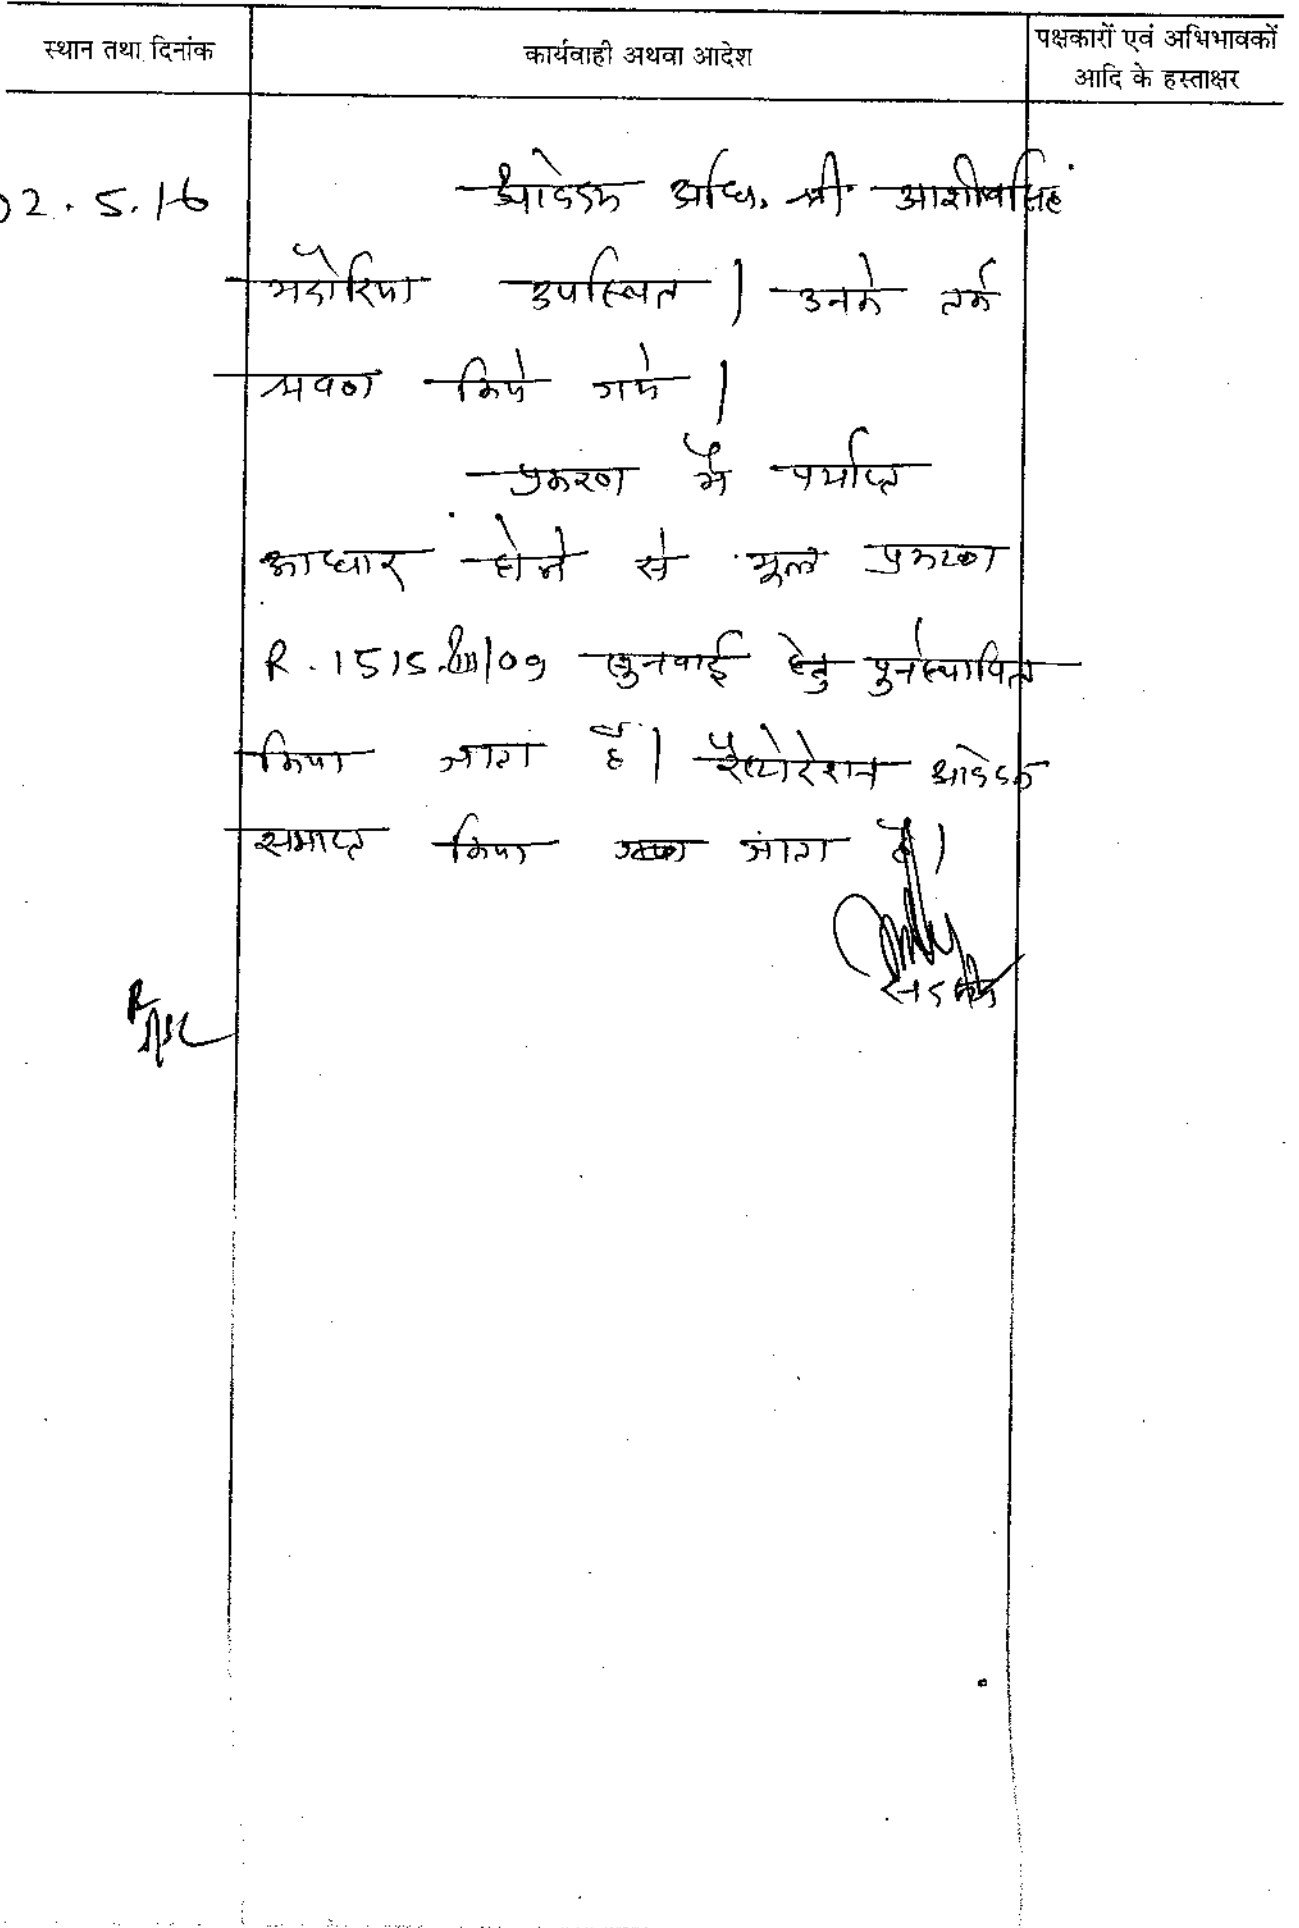 स्थान तथा दिनांक
कार्यवाही अथवा आदेश
पक्षकारों एवं अभिभावकों
आदि के हस्ताक्षर
02.5.16
आवेदक अधि. श्री आशीषसिंह
भदौरिया उपस्थित। उनके तर्क
श्रवण किये गये।
प्रकरण में पर्याप्त
आधार होने से मूल प्रकरण
R.1515.III/09 सुनवाई हेतु पुर्नस्थापित
किया जाता है। रैस्टोरेशन आवेदन
समाप्त किया जाता है।
सदस्य